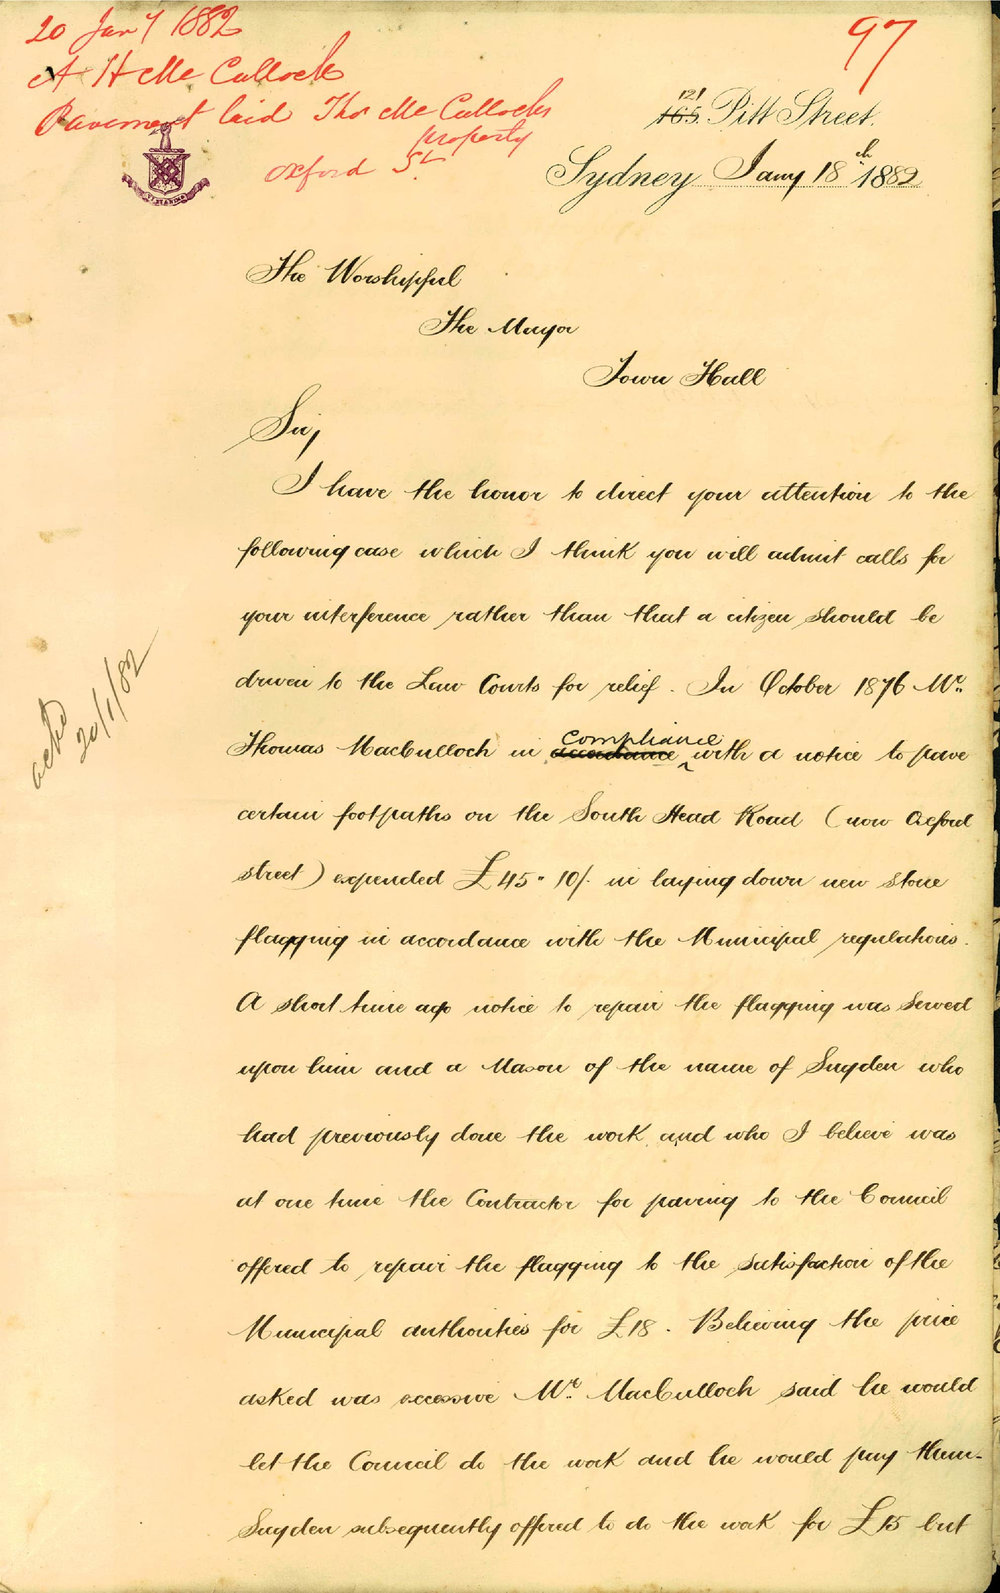 20 Jany 1882
A H McCullock
Pavement laid Thos McCullocks
property
Oxford St.
97
121
165. Pitt Street.
Sydney Jany 18th 1882
The Worshipful
The Mayor
Town Hall
Sir,
I have the honor to direct your attention to the
following case which I think you will admit calls for
your interference rather than that a citizen should be
driven to the Law Courts for relief. In October 1876 Mr.
compliance
Thomas MacCulloch in accordance with a notice to pave
certain footpaths on the South Head Road (now Oxford
street) expended £45"10/- in laying down new stone
flagging in accordance with the Municipal regulations.
A short time ago notice to repair the flagging was served
upon him and a Mason of the name of Sugden who
had previously done the work, and who I believe was
at one time the Contractor for paving to the Council
offered to repair the flagging to the satisfaction of the
Municipal authorities for £18. Believing the price
asked was excessive Mr. MacCulloch said he would
let the Council do the work and he would pay them.
Sugden subsequently offered to do the work for £15 but
ackd
20/1/82